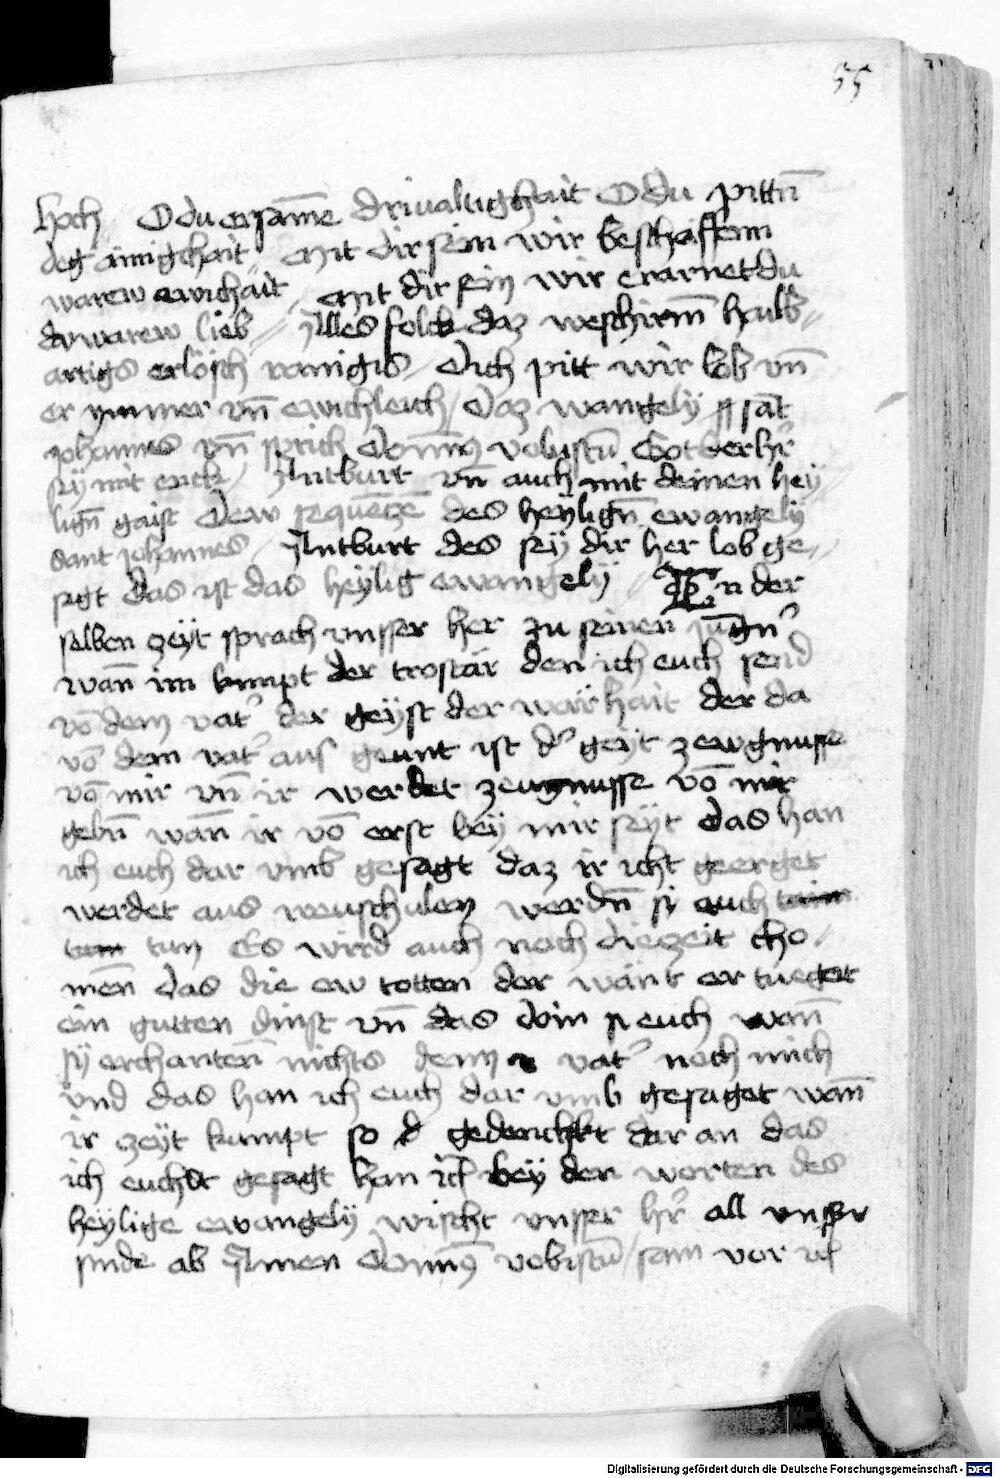 55
Hoch // O du ersam̄e drivaltigchait O du pittn̄
deg ainigchait // Mit dir sein wir beschaffenn
warew ewichait, Mit dir sein wir erarnet du
du warew lieb // Alles folck daz weschirm̄ haill//
artigs erlösch / Dich pitt wir lob vn̄
er ymmer vn̄ ewichleich / Daz wangelÿ sāt
Johannes vn̄ sprich Domin9 vobistū Got der hr̄
sÿ mit euch / Antburt vn̄ auch mit deinen heÿ
lign̄ gaist Dew sequēcze des heÿlign̄ ewangelÿ
sant Johannes / Antburt des seÿ dir her lob ge//
sagt das ist das heÿlig ewangelÿ In der
selben zeÿt sprach vnsser her zu seinen jūgn̄
wan̄ im kumpt der trostär den ich euch send
vō dem vat' der geÿst der warhait der da
vō dem vat' aus geunt ist d' geÿt zewgnusse
vō mir vn̄ ir werdet zeugnusse vō mir
gebn̄ wan̄ ir vō erst beÿ mir seÿt das han
ich euch dar vmb gesagt daz ir icht geerget
werdet aus werdn̄ sÿ euch
tun Es wird auch noch die zeit cho/
men̄ das die ew totten der wänt er tueget
ein gutten dinst vn̄ das euch wan̄
sÿ erchanten̄ nichts denn vat' noch mich
vnd das han ich euch dar vmb gesaget wan̄
ir zeÿt kumpt so gedenchkt dar an das
ich euch gesagt han ich beÿ den worten des
heÿlige ewangelÿ wischt vnsser hr̄ all vnser
sunde ab Amen Domin9 vobistū / sam vor
Digitalisierung gefördert durch die Deutsche Forschungsgemeinschaft - DFG